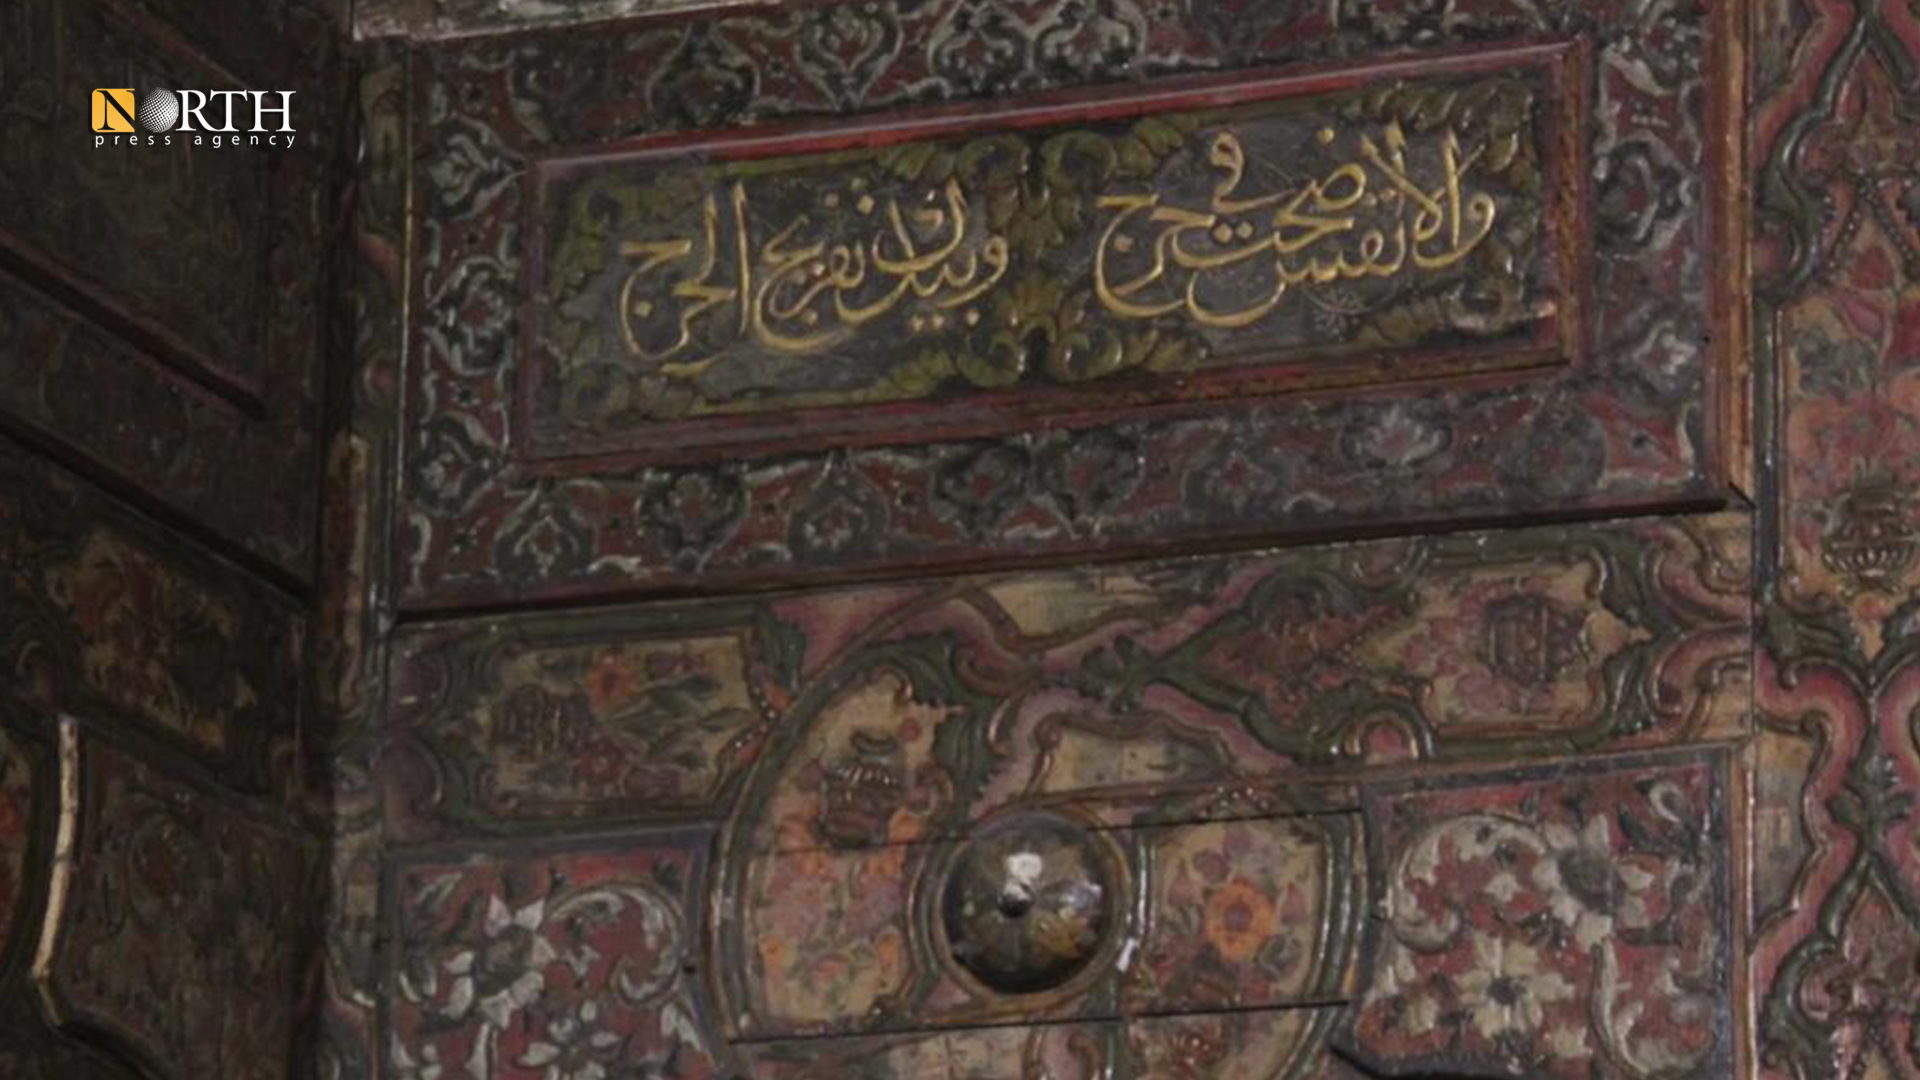 NORTH
press agency
والأنفس أضحت في حرج
وبيدك تفريج الحرج